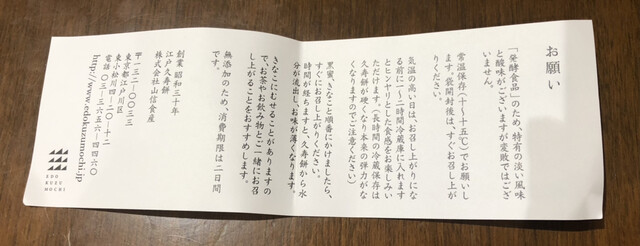 お願い
「発酵食品」のため、特有の淡い風味
と酸味がございますが変敗ではござ
いません。
常温保存(十〜十五℃)でお願いし
ます。袋開封後は、すぐお召し上が
りください。
気温の高い日は、お召し上がりにな
る前に一〜二時間冷蔵庫に入れます
とヒンヤリとした食感をお楽しみい
ただけます。(長時間の冷蔵保存は
久寿餅が硬くなり本来の弾力がな
くなりますのでご注意ください)
黒蜜、きなこと順番にかけましたら、
すぐにお召し上がりください。
時間が経ちますと、久寿餅から水
分が流出し、お味が薄くなります。
きなこにむせることがありますの
で、お茶やお飲み物とご一緒にお召
し上がることをおすすめします。
無添加のため、消費期限は二日間
です。
創業 昭和三十年
江戸久寿餅
株式会社 山信食産
〒一三二-〇〇三三
東京都江戸川区
東小松川四-二〇-十二
電話 〇三-三六五六-四四六〇
http://www.edokusumochi.jp
EDO
KUZU
MOCHI